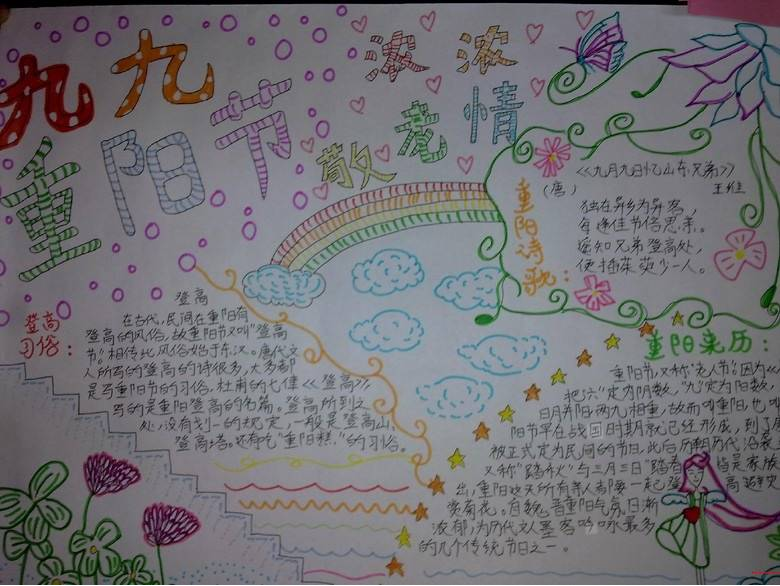 九九
重阳节
浓浓
敬老情
重阳诗歌：
《九月九日忆山东兄弟》
（唐） 王维
独在异乡为异客，
每逢佳节倍思亲。
遥知兄弟登高处，
便插茱萸少一人。
登高
习俗：
登高
在古代，民间在重阳有
登高的风俗，故重阳节又叫"登高
节"。相传此风俗始于东汉。唐代文
人所写的登高的诗很多，大多都
是写重阳节的习俗。杜甫的七律《登高》，
写的是重阳登高的名篇。登高所到之
处，没有划一的规定，一般是登高山、
登高塔。还有吃"重阳糕"的习俗。
重阳来历：
重阳节，又称"老人节"。因为《
把六"定为阴数，"九"定为阳数，
日月并阳，两九相重，故而叫重阳，也叫
阳节早在战国时期就已经形成，到了
被正式定为民间的节日，此后历朝历代沿袭
又称"踏秋"与三月三日"踏 皆是家族
出，重阳这天所有亲人都要一起登高
赏菊花。自魏晋重阳气氛日渐
浓郁，为历代文人墨客吟咏最多
的几个传统节日之一。